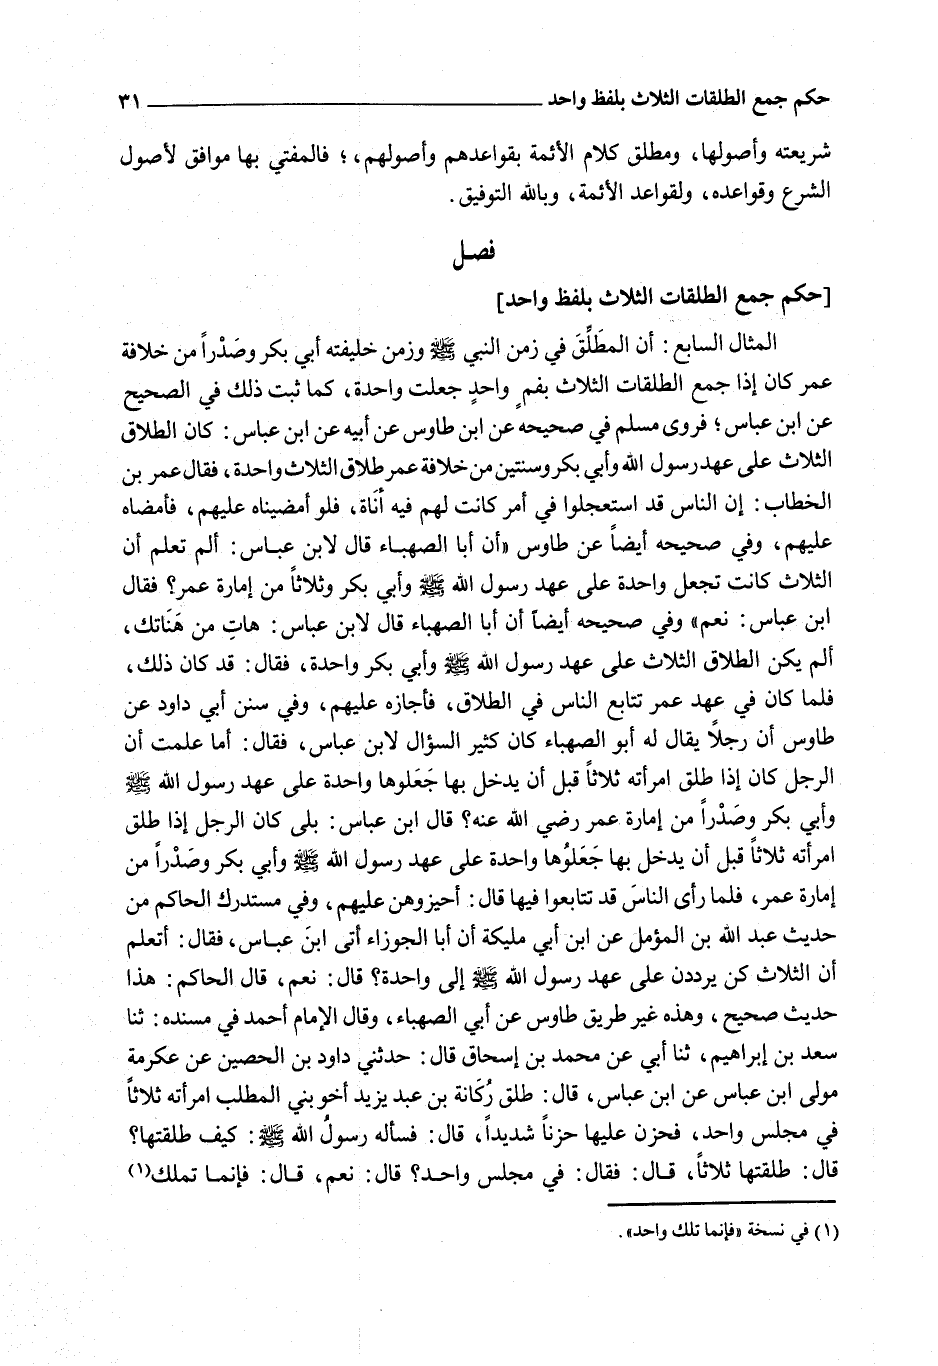 حكم جمع الطلقات الثلاث بلفظ واحد ٣١
شريعته وأصولها، ومطلق كلام الأئمة بقواعدهم وأصولهم،؛ فالمفتي بها موافق لأصول
الشرع وقواعده، ولقواعد الأئمة، وبالله التوفيق.
فصل
[حكم جمع الطلقات الثلاث بلفظ واحد]
المثال السابع: أن المطَلِّقَ في زمن النبي ﷺ وزمن خليفته أبي بكر وصَدْراً من خلافة
عمر كان إذا جمع الطلقات الثلاث بفمٍ واحدٍ جعلت واحدة، كما ثبت ذلك في الصحيح
عن ابن عباس؛ فروى مسلم في صحيحه عن ابن طاوس عن أبيه عن ابن عباس: كان الطلاق
الثلاث على عهد رسول الله وأبي بكر وسنتين من خلافة عمر طلاق الثلاث واحدة، فقال عمر بن
الخطاب: إن الناس قد استعجلوا في أمر كانت لهم فيه أَنَاة، فلو أمضيناه عليهم، فأمضاه
عليهم، وفي صحيحه أيضاً عن طاوس «أن أبا الصهباء قال لابن عباس: ألم تعلم أن
الثلاث كانت تجعل واحدة على عهد رسول الله ﷺ وأبي بكر وثلاثاً من إمارة عمر؟ فقال
ابن عباس: نعم» وفي صحيحه أيضاً أن أبا الصهباء قال لابن عباس: هاتِ من هَنَاتك،
ألم يكن الطلاق الثلاث على عهد رسول الله ﷺ وأبي بكر واحدة، فقال: قد كان ذلك،
فلما كان في عهد عمر تتابع الناس في الطلاق، فأجازه عليهم، وفي سنن أبي داود عن
طاوس أن رجلاً يقال له أبو الصهباء كان كثير السؤال لابن عباس، فقال: أما علمت أن
الرجل كان إذا طلق امرأته ثلاثاً قبل أن يدخل بها جَعَلوها واحدة على عهد رسول الله ﷺ
وأبي بكر وصَدْراً من إمارة عمر رضي الله عنه؟ قال ابن عباس: بلى كان الرجل إذا طلق
امرأته ثلاثاً قبل أن يدخل بها جَعَلُوها واحدة على عهد رسول الله ﷺ وأبي بكر وصَدْراً من
إمارة عمر، فلما رأى الناسَ قد تتابعوا فيها قال: أجيزوهن عليهم، وفي مستدرك الحاكم من
حديث عبد الله بن المؤمل عن ابن أبي مليكة أن أبا الجوزاء أتى ابنَ عباس، فقال: أتعلم
أن الثلاث كن يرددن على عهد رسول الله ﷺ إلى واحدة؟ قال: نعم، قال الحاكم: هذا
حديث صحيح، وهذه غير طريق طاوس عن أبي الصهباء، وقال الإمام أحمد في مسنده: ثنا
سعد بن إبراهيم، ثنا أبي عن محمد بن إسحاق قال: حدثني داود بن الحصين عن عكرمة
مولى ابن عباس عن ابن عباس، قال: طلق رُكَانة بن عبد يزيد أخو بني المطلب امرأته ثلاثاً
في مجلس واحد، فحزن عليها حزناً شديداً، قال: فسأله رسولُ الله ﷺ: كيف طلقتها؟
قال: طلقتها ثلاثاً، قال: فقال: في مجلس واحد؟ قال: نعم، قال: فإنما تملك(١)
(١) في نسخة «فإنما تلك واحد».